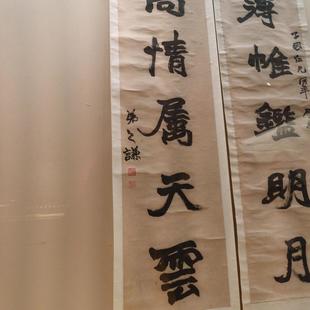 薄帷鑑明月
高情属天雲
弟之謙